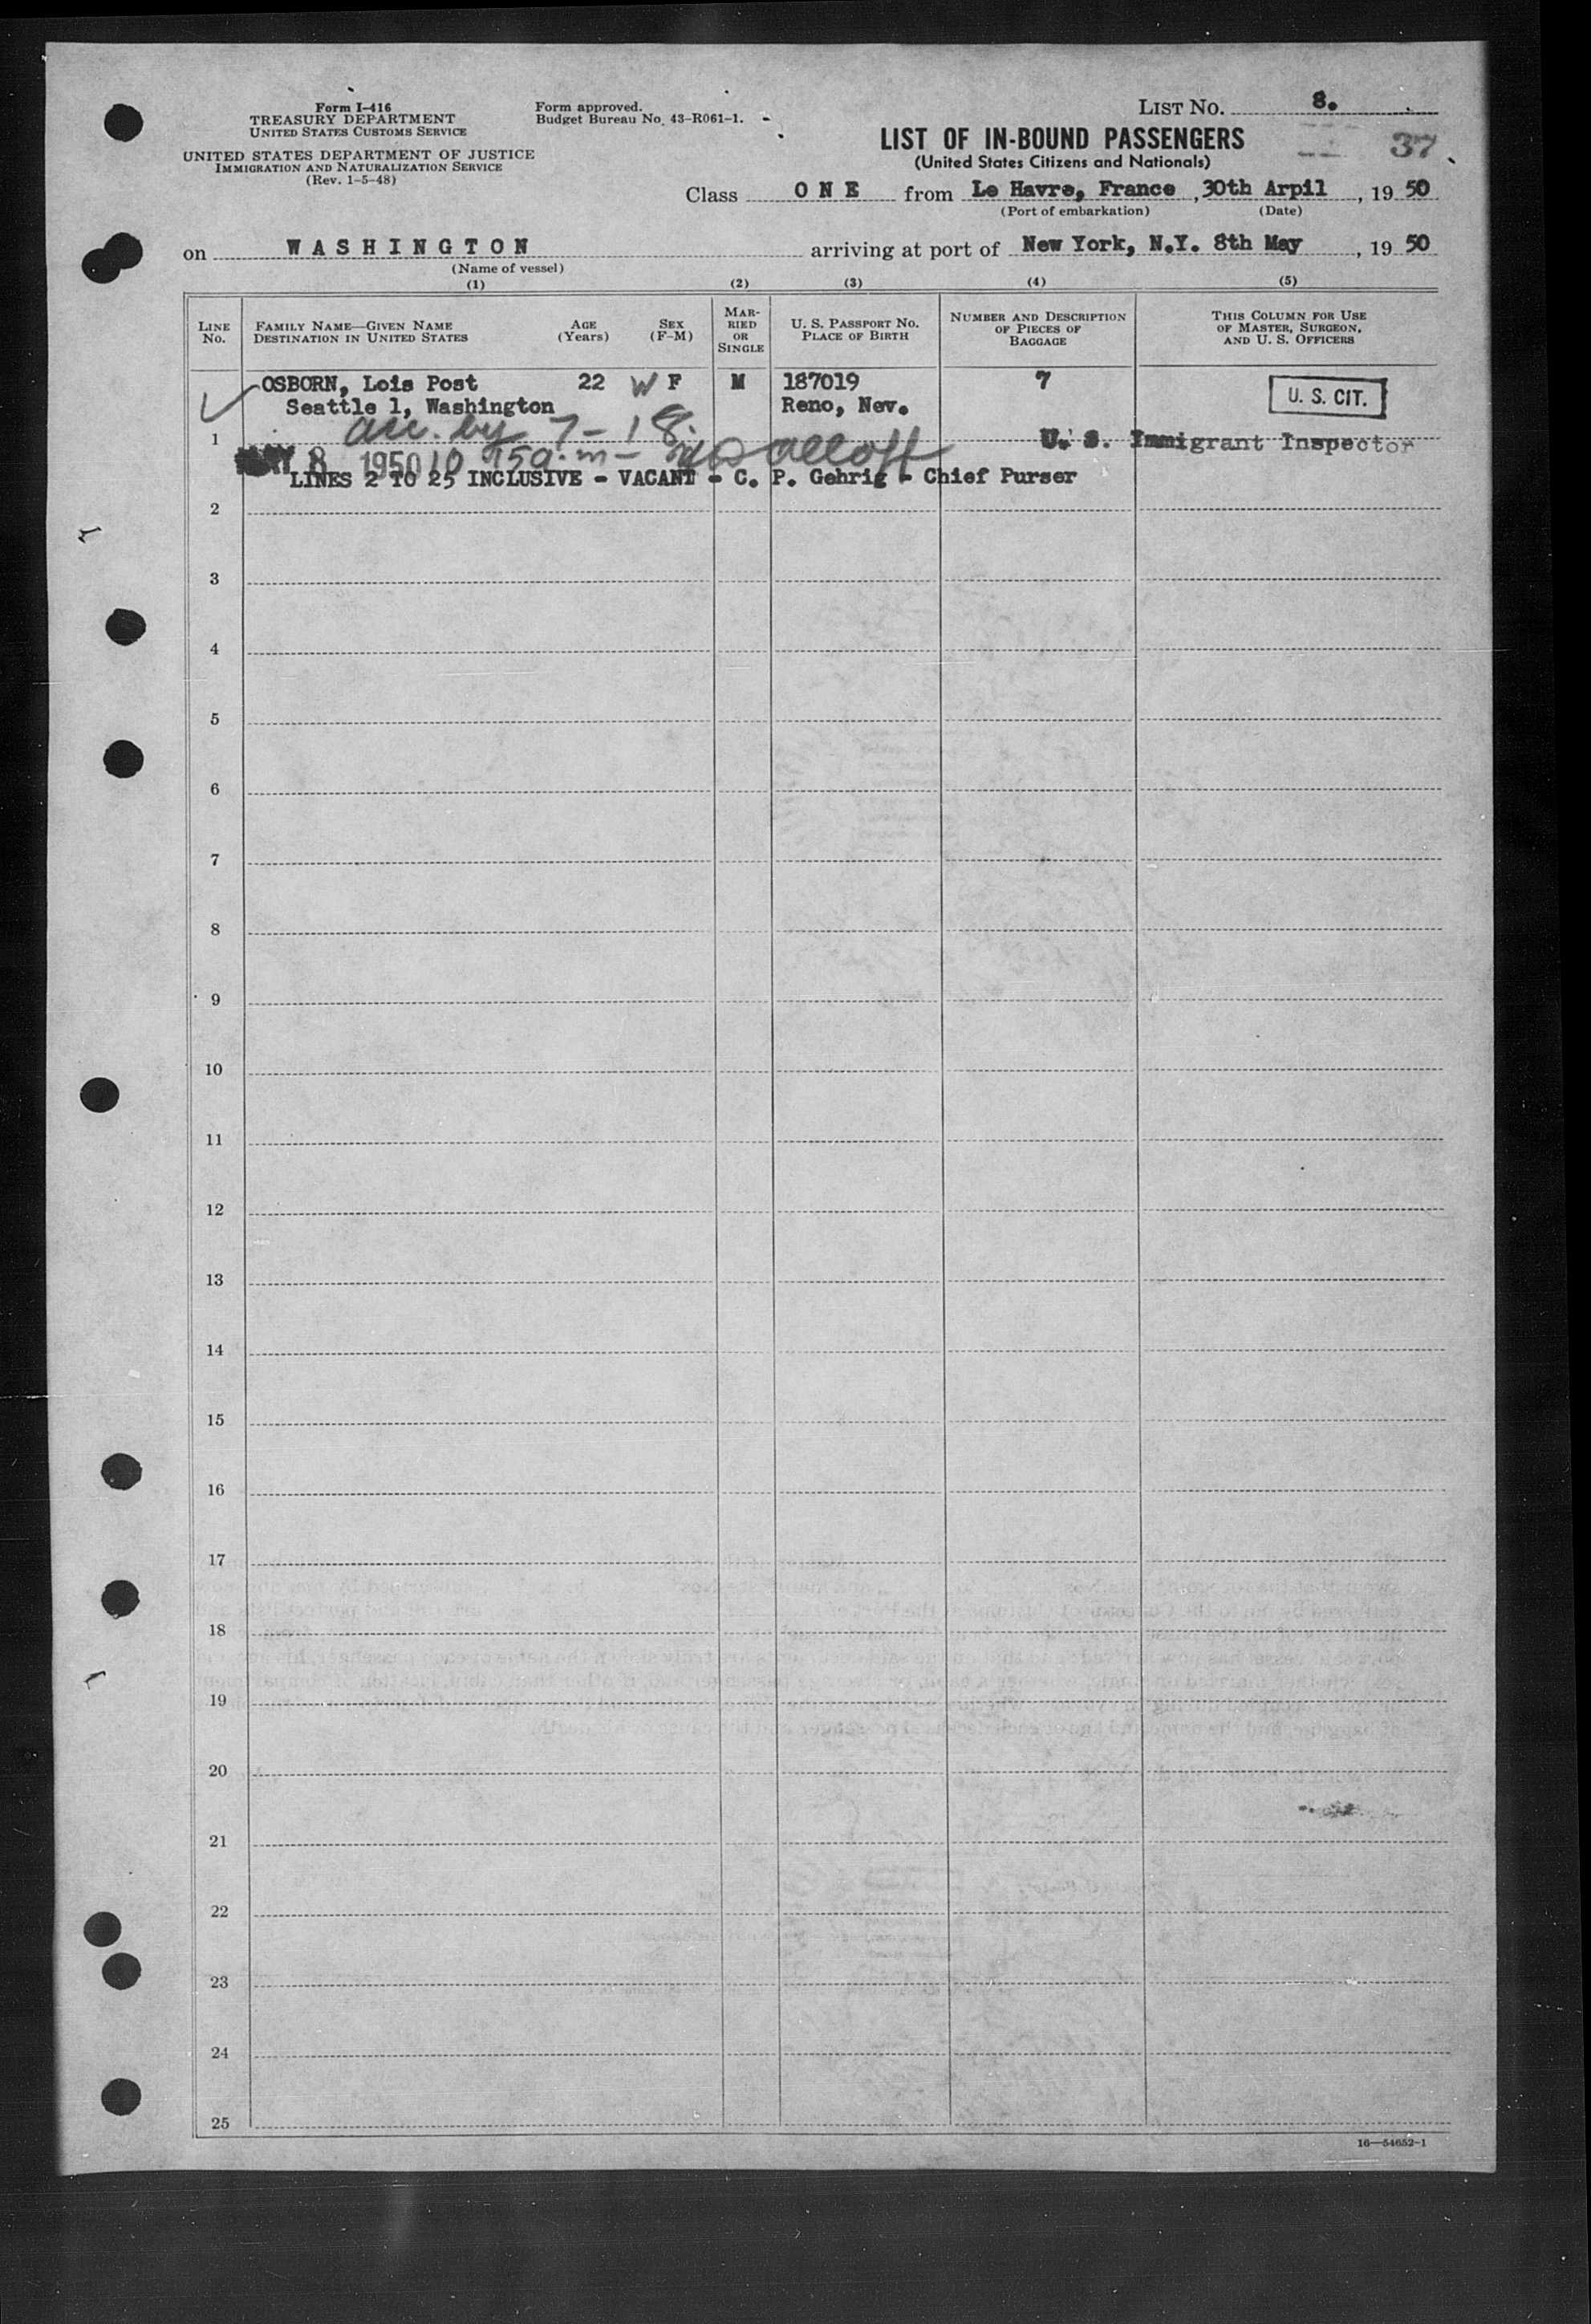 Form I-416
TREASURY DEPARTMENT
UNITED STATES CUSTOMS SERVICE
UNITED STATES DEPARTMENT OF JUSTICE
IMMIGRATION AND NATURALIZATION SERVICE
(Rev. 1-5-48)
Form approved.
Budget Bureau No. 43-R061-1.
LIST NO. 8.
37
LIST OF IN-BOUND PASSENGERS
(United States Citizens and Nationals)
Class O N E from Le Havre, France, 30th Arpil, 19 50
(Port of embarkation) (Date)
on W A S H I N G T O N arriving at port of New York, N.Y. 8th May, 19 50
(Name of vessel)
(1) (2) (3) (4) (5)
LINE No.
FAMILY NAME—GIVEN NAME
DESTINATION IN UNITED STATES
AGE (Years)
SEX (F-M)
MARRIED OR SINGLE
U. S. PASSPORT NO.
PLACE OF BIRTH
NUMBER AND DESCRIPTION OF PIECES OF BAGGAGE
THIS COLUMN FOR USE OF MASTER, SURGEON, AND U. S. OFFICERS
OSBORN, Lois Post 22 W F M 187019 7 U. S. CIT.
Seattle 1, Washington Reno, Nev.
acc. by 7-18
1 U. S. Immigrant Inspector
MAY 8 1950 10 15 a.m-
LINES 2 TO 25 INCLUSIVE - VACANT - C. P. Gehrig - Chief Purser
2
3
4
5
6
7
8
9
10
11
12
13
14
15
16
17
18
19
20
21
22
23
24
25
16—54652-1